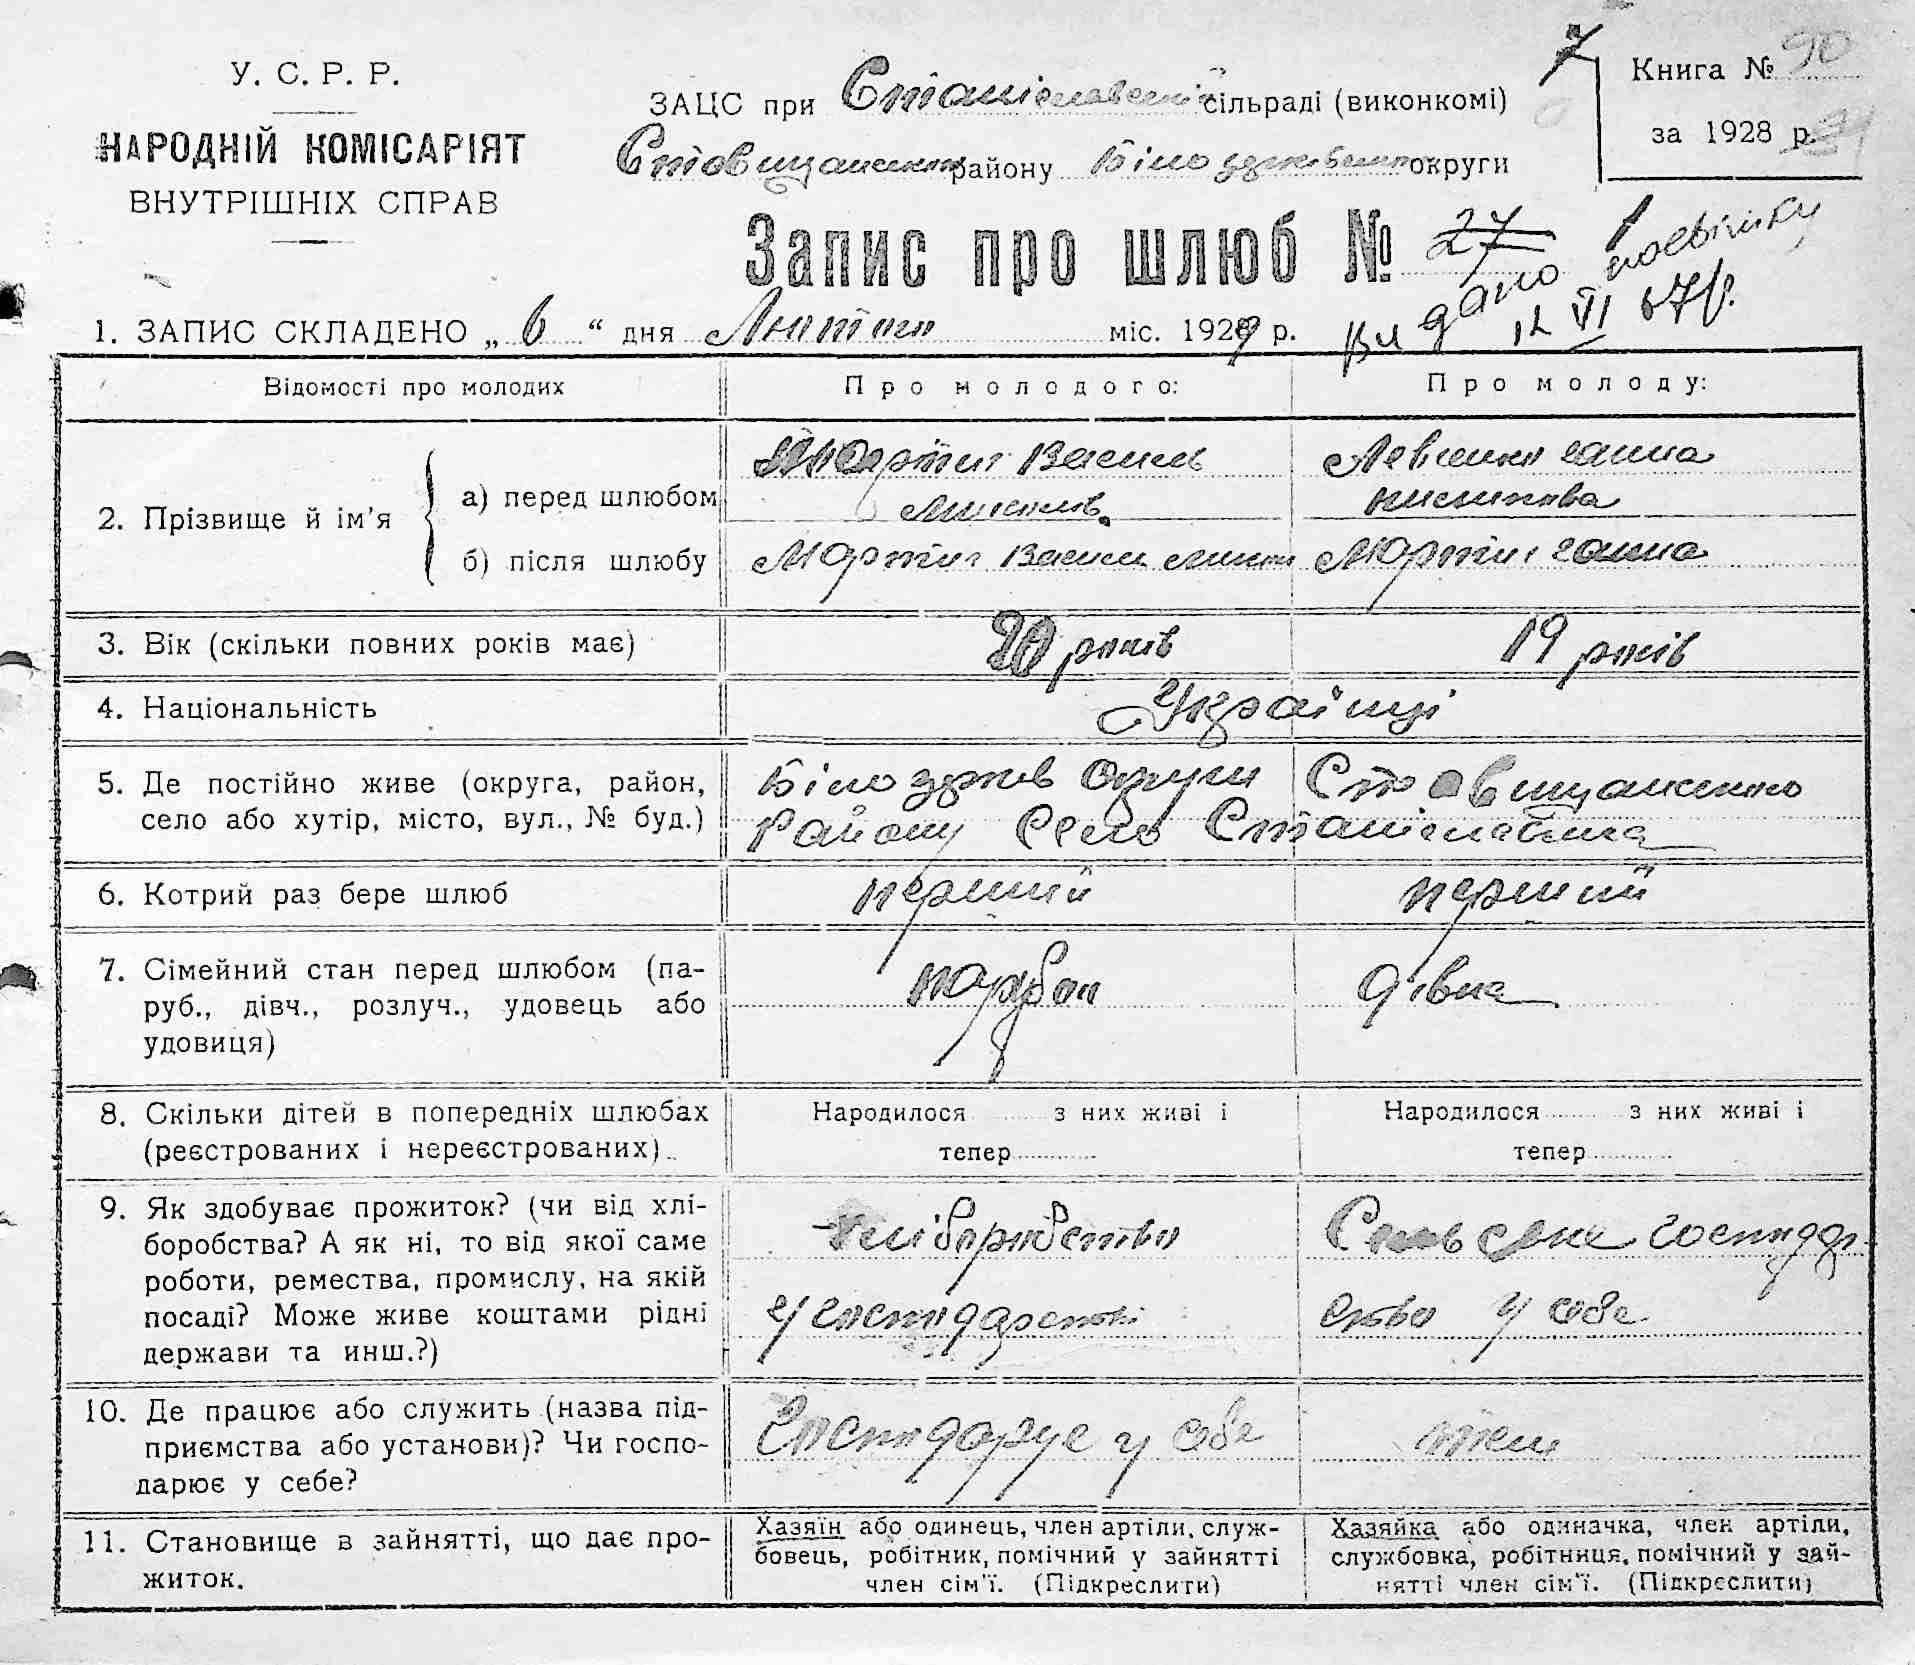 У. С. Р. Р.
НАРОДНІЙ КОМІСАРІЯТ
ВНУТРІШНІХ СПРАВ
ЗАЦС при Станіславській сільраді (виконкомі)
Ставищанськ району Білоцерківськ округи
7
Книга № 90
за 1928 р.
Запис про шлюб № 27
Видано посвідку
12 VI 67 р.
1. ЗАПИС СКЛАДЕНО „ 6 “ дня Лютого міс. 1929 р.
Відомості про молодих
Про молодого:
Про молоду:
2. Прізвище й ім'я
а) перед шлюбом
Мартин Василь
Левченко Ганна
б) після шлюбу
Мартин Василь
Мартин Ганна
3. Вік (скільки повних років має)
20 років
19 років
4. Національність
Українці
5. Де постійно живе (округа, район,
село або хутір, місто, вул., № буд.)
Білоцерків округи Ставищанського
Району Село Станіславчика
6. Котрий раз бере шлюб
перший
перший
7. Сімейний стан перед шлюбом (па-
руб., дівч., розлуч., удовець або
удовиця)
парубок
дівка
8. Скільки дітей в попередніх шлюбах
(реєстрованих і нереєстрованих)
Народилося з них живі і
тепер
Народилося з них живі і
тепер
9. Як здобуває прожиток? (чи від хлі-
боробства? А як ні, то від якої саме
роботи, ремества, промислу, на якій
посаді? Може живе коштами рідні
держави та инш.?)
хліборобство
у господарстві
Сельське господар
ство у себе
10. Де працює або служить (назва під-
приємства або установи)? Чи госпо-
дарює у себе?
Господарує у себе
теж
11. Становище в зайнятті, що дає про-
житток.
Хазяїн або одинець, член артіли, служ-
бовець, робітник, помічний у зайнятті
член сім'ї. (Підкреслити)
Хазяйка або одиначка, член артіли,
службовка, робітниця, помічний у зай-
нятті член сім'ї. (Підкреслити)